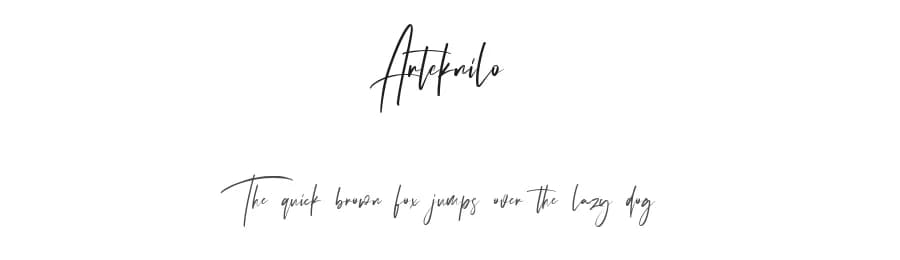 Arteknilo
The quick brown fox jumps over the lazy dog